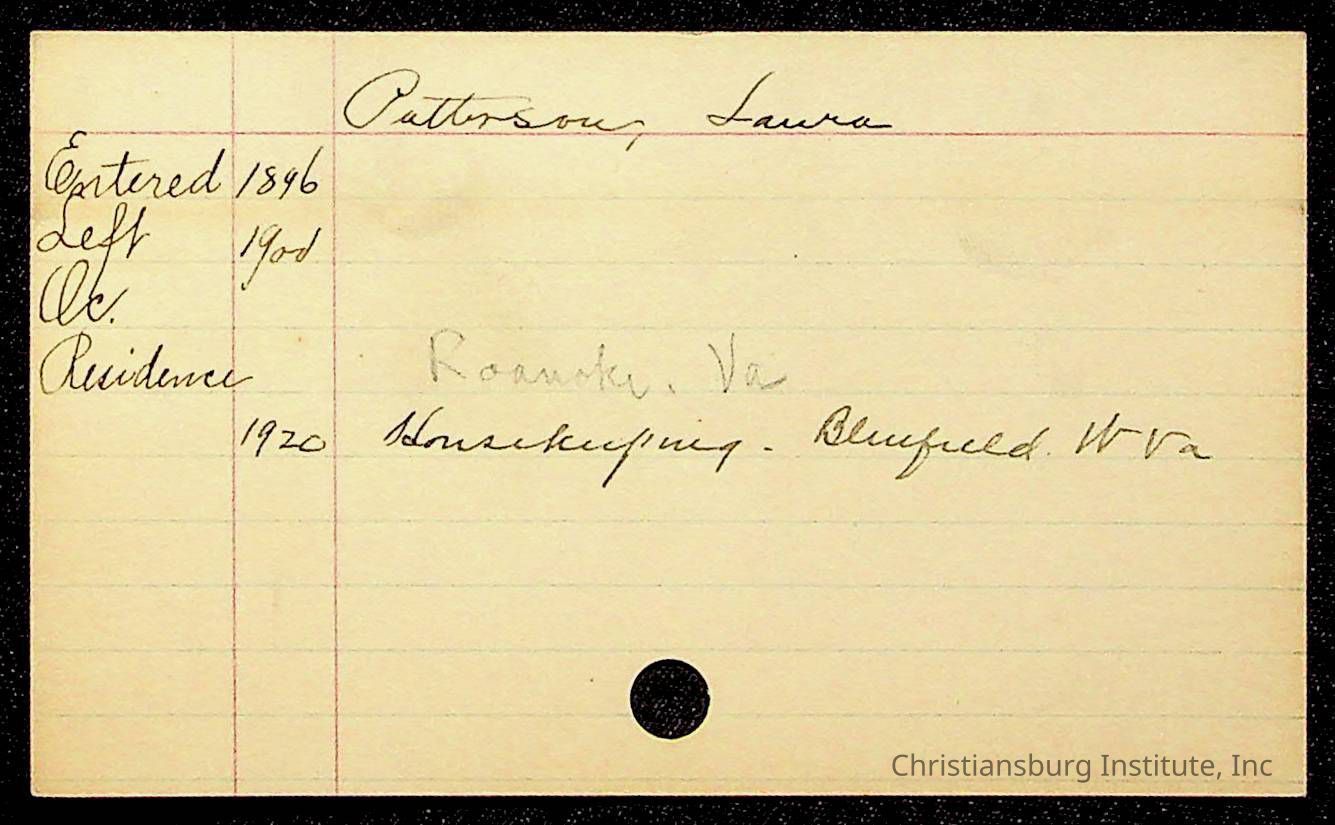 Patterson, Laura
Entered 1896
Left
Oc.
Residence Roanoke, Va
1920 Housekeeping - Bluefield. W Va
Christiansburg Institute, Inc